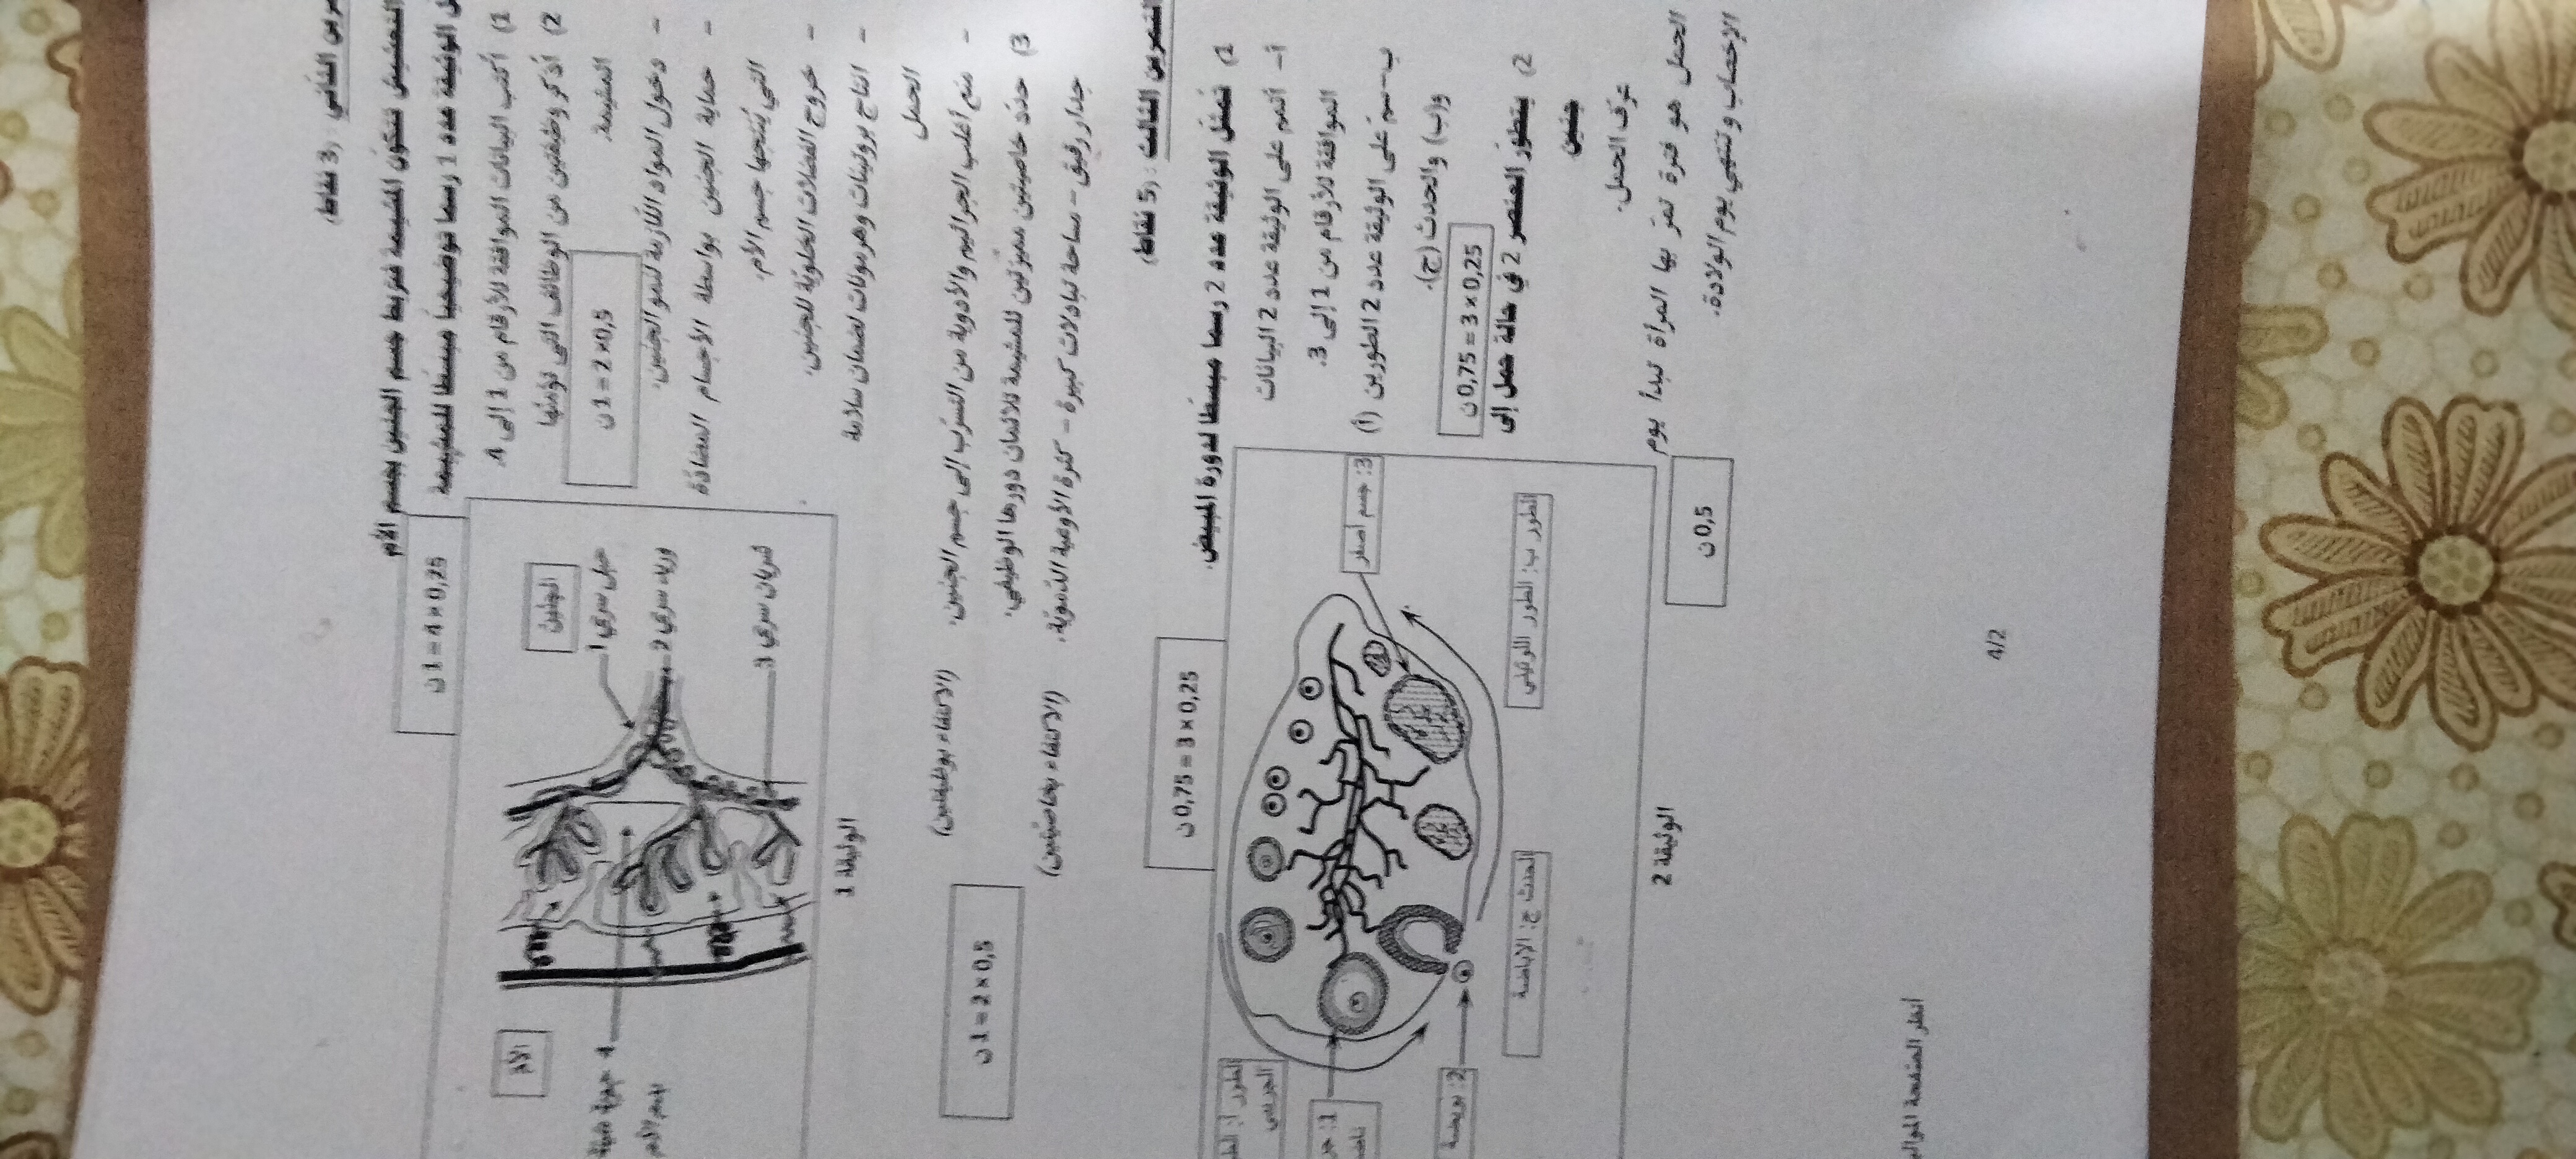 التمرين الثاني: (3 نقاط)
التعشيش تتكوّن المشيمة فتربط جسم الجنين بجسم الأم
الوثيقة عدد 1 رسما توضيحيا مبسّطا للمشيمة
1) أكتب البيانات الموافقة للأرقام من 1 إلى 4.
0,25 × 4 = 1 ن
2) أذكر وظيفتين من الوظائف التي تؤمّنها
المشيمة.
0,5 × 2 = 1 ن
- دخول المواد اللّازمة لنمو الجنين.
- حماية الجنين بواسطة الأجسام المضادّة
التي يُنتجها جسم الأم.
- خروج الفضلات الخلويّة للجنين.
- انتاج بروتينات وهرمونات لضمان سلامة
الحمل
- منع أغلب الجراثيم والأدوية من التسرّب إلى جسم الجنين. (الاكتفاء بوظيفتين)
الجنين
حبل سري 1
وريد سري 2
شريان سري 3
الأم
4 جوبة مليئة
بدم الأم
الوثيقة 1
3) حدّد خاصيتين مميّزتين للمشيمة تلائمان دورها الوظيفي.
0,5 × 2 = 1 ن
جدار رقيق - ساحة تبادلات كبيرة - كثرة الأوعية الدّمويّة. (الاكتفاء بخاصيّتين)
التمرين الثالث: (5 نقاط)
1) تُمثّل الوثيقة عدد 2 رسما مبسّطا لدورة المبيض.
0,25 × 3 = 0,75 ن
أ- أتمم على الوثيقة عدد 2 البيانات
الموافقة للأرقام من 1 إلى 3.
ب- سمّ على الوثيقة عدد 2 الطورين (أ)
و(ب) والحدث (ج).
0,25 × 3 = 0,75 ن
2) يتطوّر العنصر 2 في حالة حمل إلى
جنين
عرّف الحمل.
الحمل هو فترة تمرّ بها المرأة تبدأ يوم
الإخصاب و تنتهي يوم الولادة.
0,5 ن
3: جسم أصفر
الطور ب: الطور اللوتيني
الحدث ج: الإباضة
2: بويضة
الطور أ:
الجريبي
1:
الوثيقة 2
أنظر الصفحة
4/2